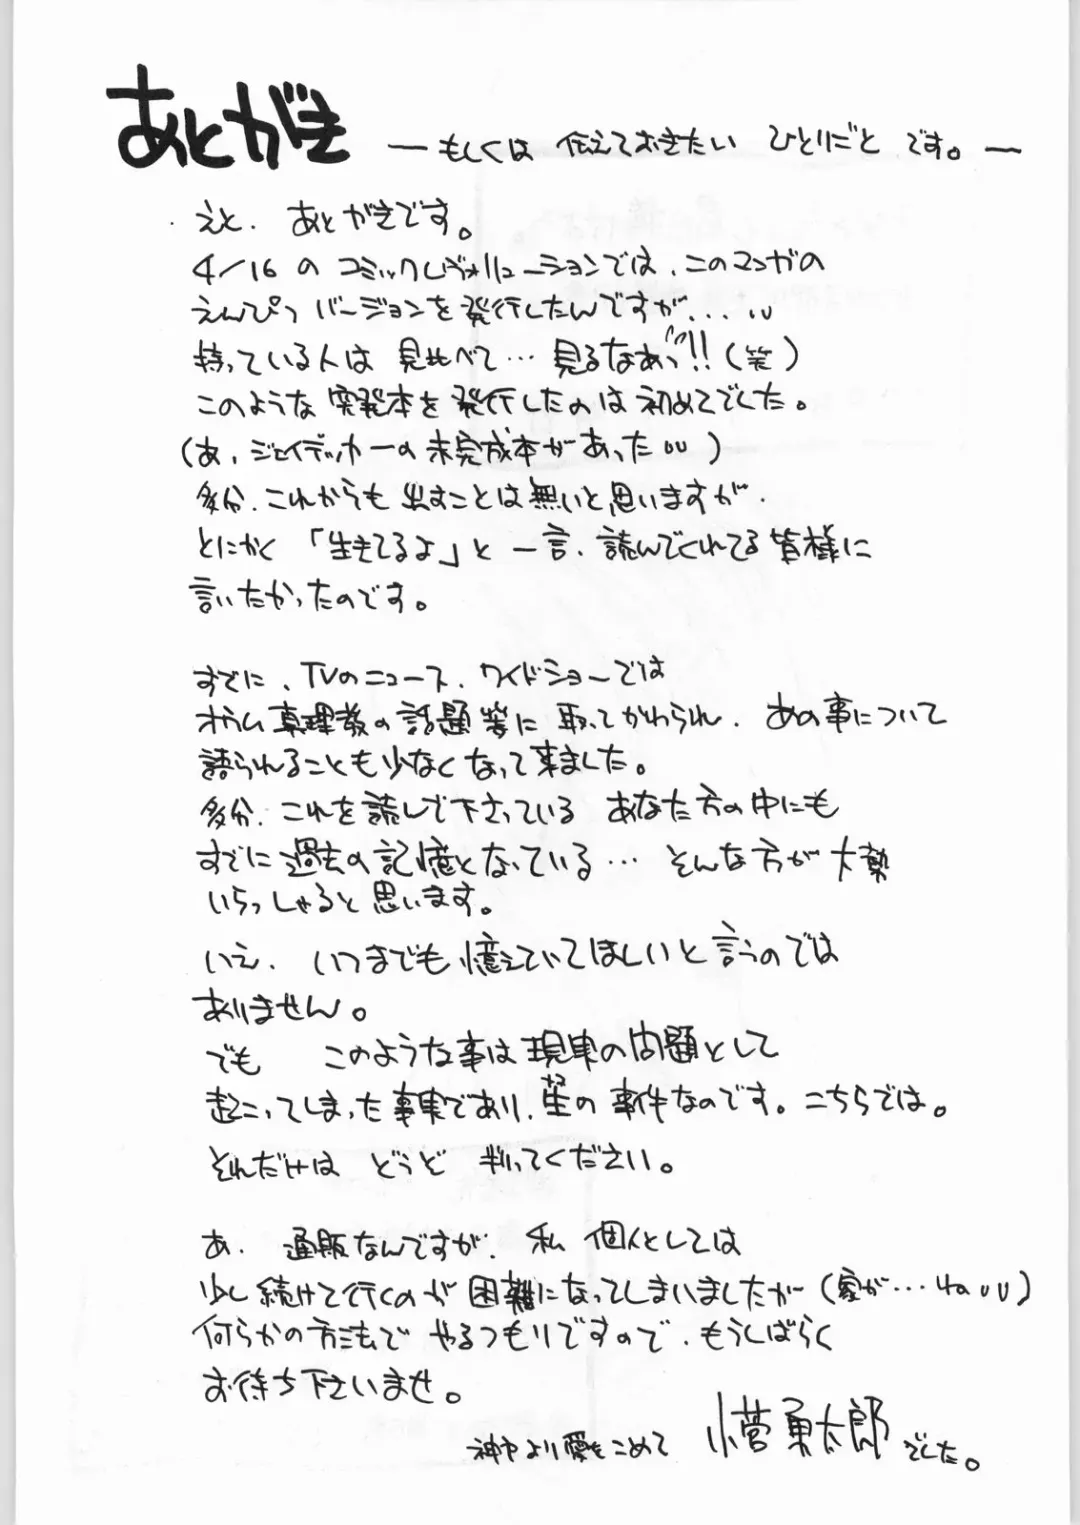 あとがき ―もしくは 伝えておきたい ひとりごと です。―
えと、あとがきです。
4/16の コミックレヴォリューションでは、このマンガの
えんぴつバージョンを発行したんですが...
持っている人は 見比べて… 見るなあっ!!(笑)
このような 突発本を発行したのは初めてでした。
(あ、ジェイデッカーの未完成本があった )
多分、これからも出すことは無いと思いますが、
とにかく「生きてるよ」と一言、読んでくれてる皆様に
言いたかったのです。
すでに、TVのニュース、ワイドショーでは
オウム真理教の話題等に取ってかわられ、あの事について
語られることも少なくなって来ました。
多分、これを読んで下さっている あなた方の中にも
すでに過去の記憶となっている… そんな方が大勢
いらっしゃると思います。
いえ、いつまでも憶えていてほしいと言うのでは
ありません。
でも このような事は現実の問題として
起こってしまった事実であり、生の事件なのです。こちらでは。
それだけは どうど 判ってください。
あ、通販なんですが、私 個人としては
少し続けて行くのが困難になってしまいましたが(家が…ね )
何らかの方法で やるつもりですので、もうしばらく
お待ち下さいませ。
神戸より愛をこめて 小菅勇太郎 でした。